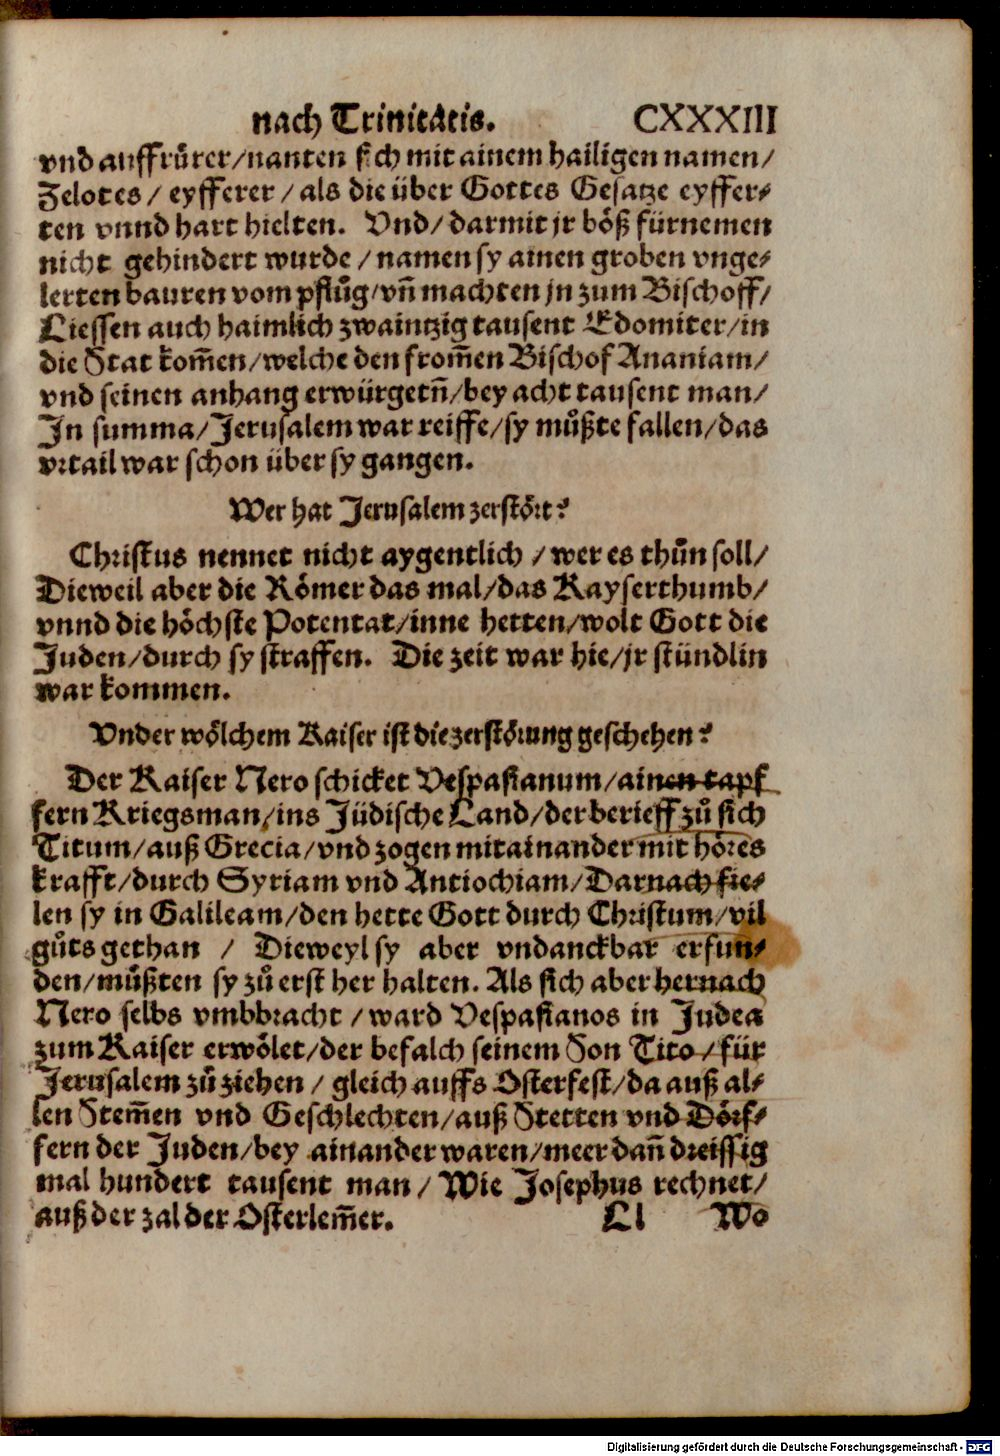 nach Trinitatis. CXXXIII
vnd auffrůrer/nanten sich mit ainem hailigen namen/
Zelotes/ eyfferer/ als die über Gottes Gesatze eyffer-
ten vnnd hart hielten. Vnd/ darmit jr böß fürnemen
nicht gehindert wurde/ namen sy ainen groben vnge-
lerten bauren vom pflůg/vñ machten jn zum Bischoff/
Liessen auch haimlich zwaintzig tausent Edomiter/in
die Stat kom̃en/welche den from̃en Bischof Ananiam/
vnd seinen anhang erwürgetñ/bey acht tausent man/
In summa/Jerusalem war reiffe/sy můßte fallen/das
vrtail war schon über sy gangen.
Wer hat Jerusalem zerstört?
Christus nennet nicht aygentlich/wer es thůn soll/
Dieweil aber die Römer das mal/das Kayserthumb/
vnnd die höchste Potentat/inne hetten/wolt Gott die
Juden/durch sy straffen. Die zeit war hie/jr stündlin
war kommen.
Vnder wölchem Kaiser ist die zerstörung geschehen?
Der Kaiser Nero schicket Vespasianum/ainen tapf
fern Kriegsman/ins Jüdische Land/der berieff zů sich
Titum/auß Grecia/vnd zogen mitainander mit höres
krafft/durch Syriam vnd Antiochiam/Darnach fie-
len sy in Galileam/den hette Gott durch Christum/vil
gůts gethan / Dieweyl sy aber vndanckbar erfun-
den/můßten sy zů erst her halten. Als sich aber hernach
Nero selbs vmbbracht/ward Vespasianos in Judea
zum Kaiser erwölet/der befalch seinem Son Tito/für
Jerusalem zů ziehen/ gleich auffs Osterfest/da auß al-
len Stem̃en vnd Geschlechten/auß Stetten vnd Dörf-
fern der Juden/bey ainander waren/meer dañ dreissig
mal hundert tausent man/ Wie Josephus rechnet/
auß der zal der Osterlem̃er. Ll Wo
Digitalisierung gefördert durch die Deutsche Forschungsgemeinschaft - DFG